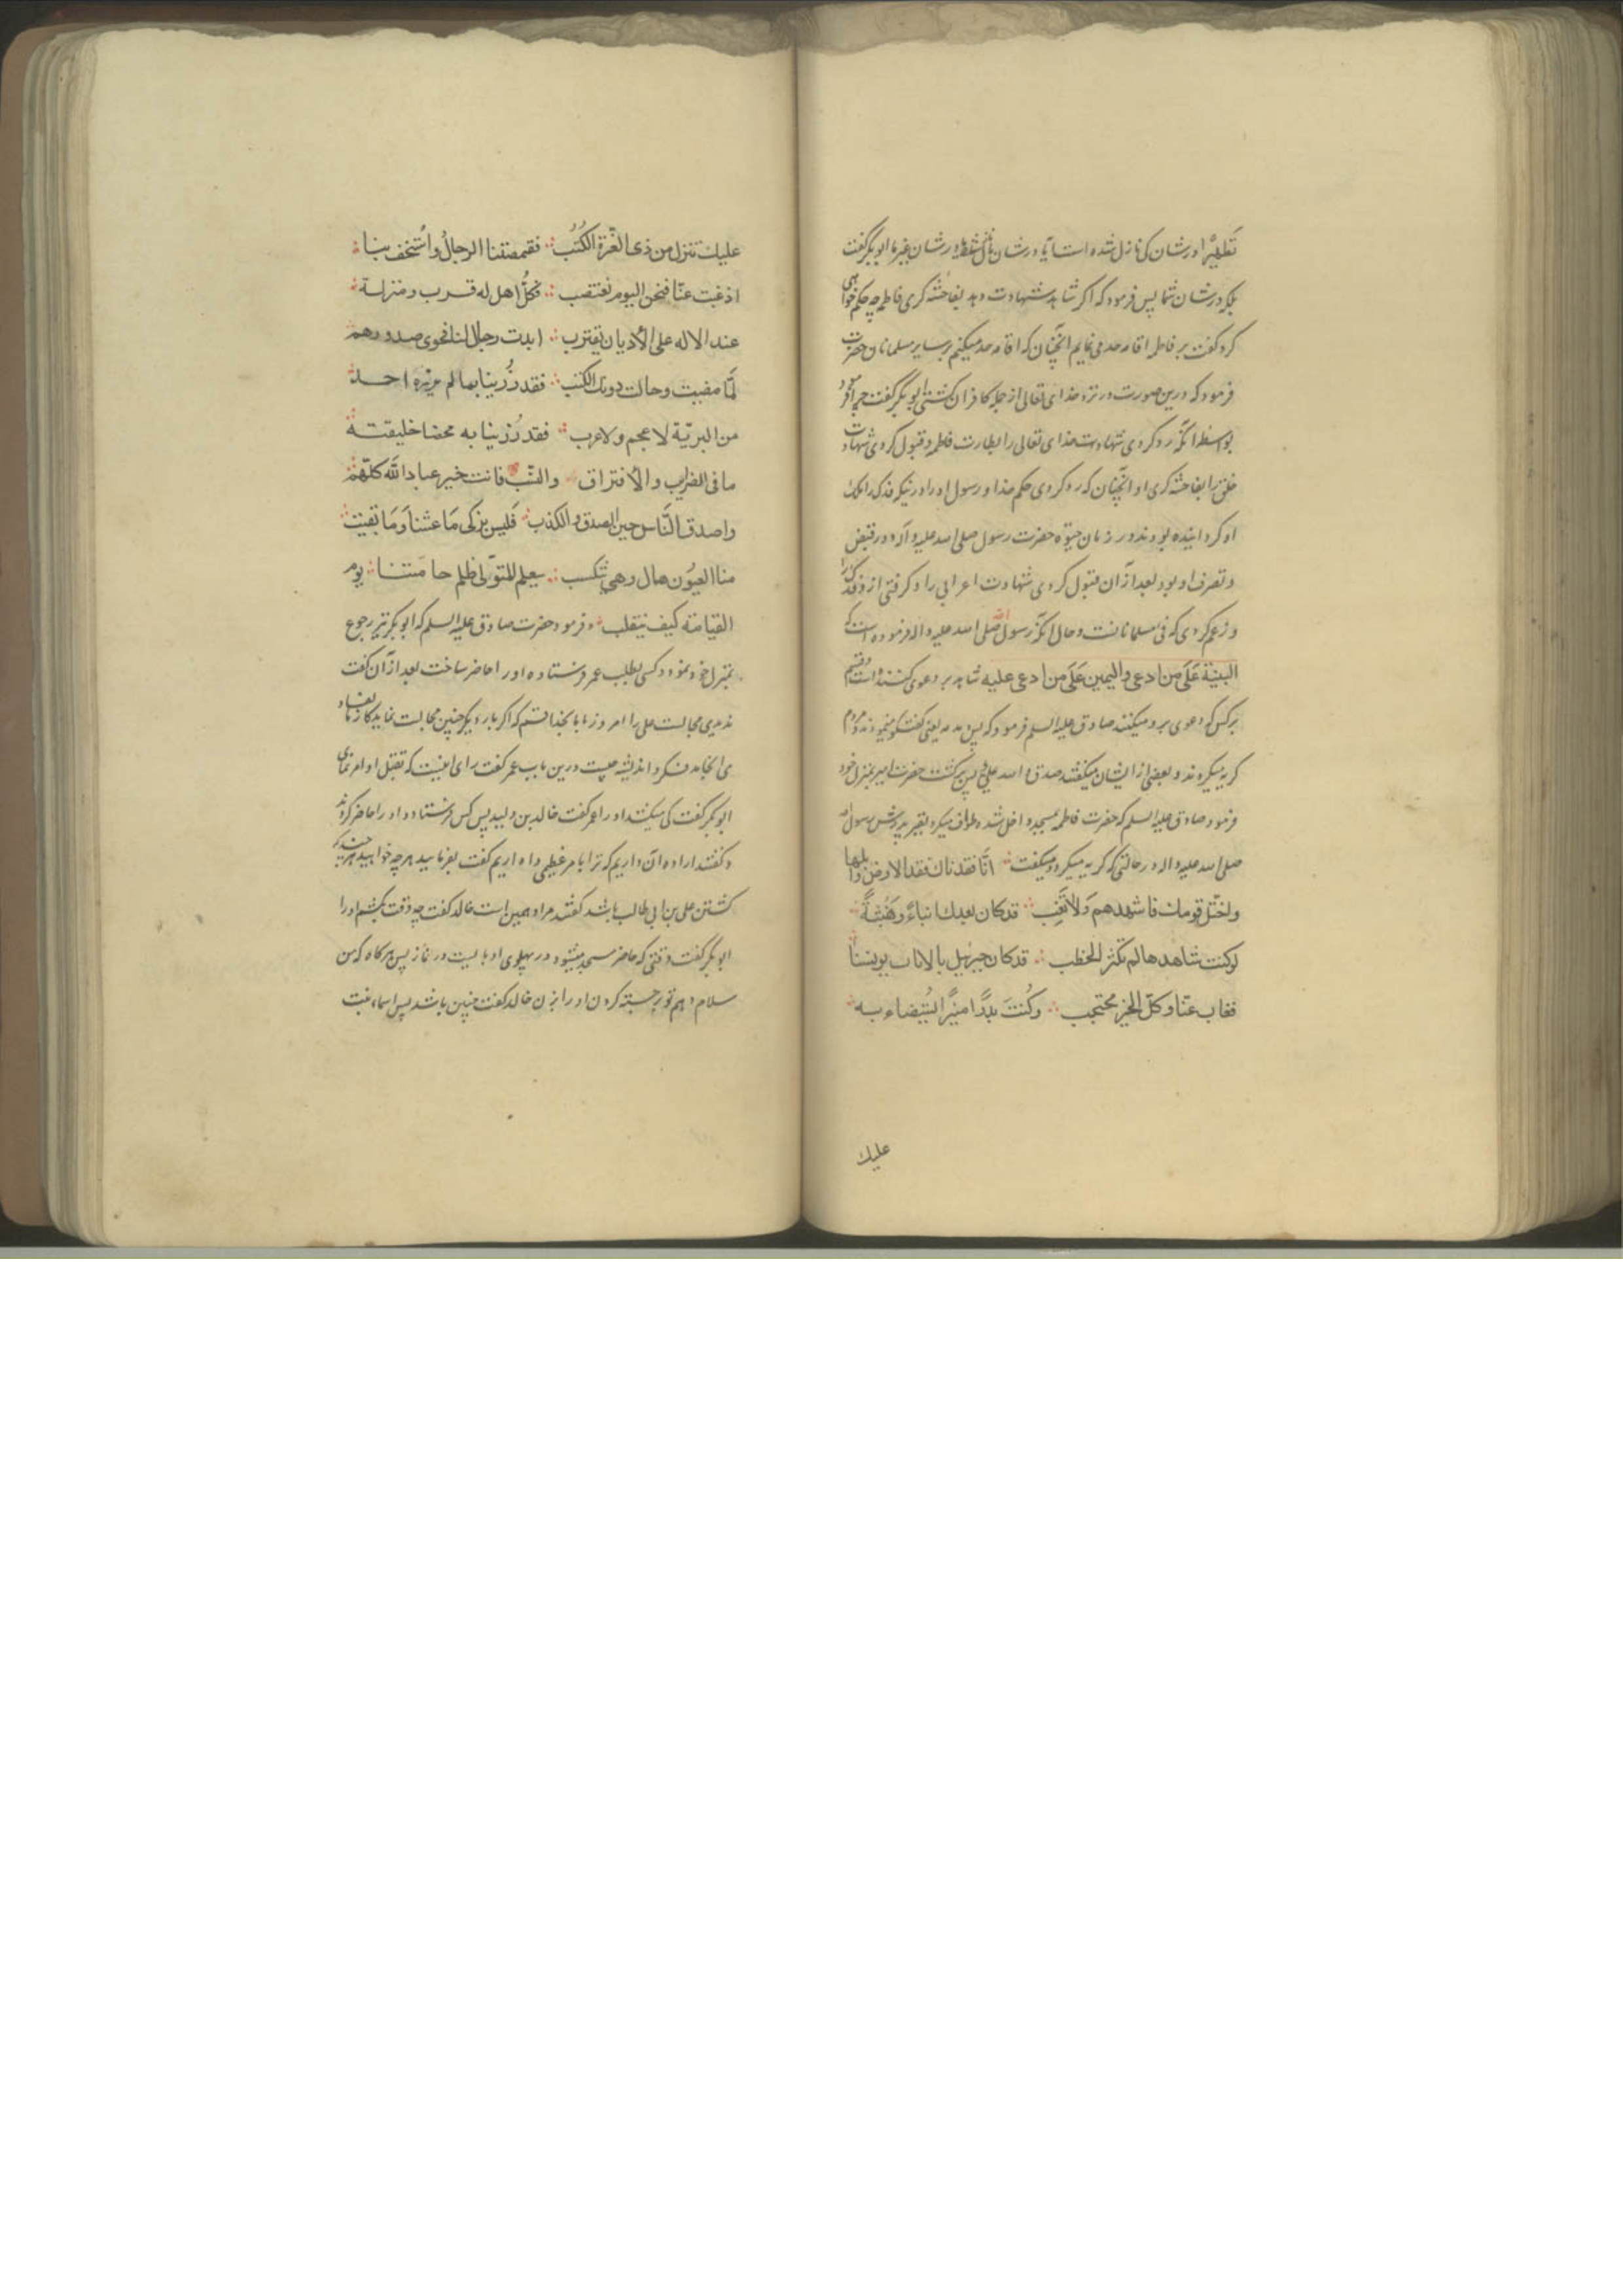 تَطهیرًا در شان کی نازل شده است آیا در شان ما نازل شده یا در شان غیر ما ابو بکر گفت
بلکه در شان شما پس فرمود که اگر شاهد شهادت دهد بفاحشه کری فاطمه چه حکم خواهی
کرد گفت بر فاطمه اقامه حد می نمایم انچنان که اقامه حد میکنم بر سایر مسلمانان حضرت
فرمود که درین صورت در نزد خدای تعالی از جمله کافران کشتی ابو بکر گفت چرا فرمود
بواسطه انکه رد کردی شهادت خدای تعالی را بطهارت فاطمه و قبول کردی شهادت
خلق را بفاحشه کری او انچنان که رد کردی حکم خدا و رسول او را در نیکه فدک را ملک
او کردانیده بودند در زمان حیوة حضرت رسول صلی الله علیه و آله و در قبض
و تصرف او بود بعد از آن قبول کردی شهادت اعرابی را و کرفتی ازو فدک را
و زعم کردی که فی مسلمانانست و حال انکه رسول الله صلی الله علیه و اله فرموده است که
البینة عَلَی من ادعی والیمین عَلَی من ادعی علیه شاهد بر دعوی کننده است و قسم
بر کس که دعوی برو میکنند صادق علیه السلم فرمود که پس مدمه یعنی گفتگو می نمودند مردم
کریه میکردند و بعضی از ایشان میکفتند صدق و الله علی پس برکشت حضرت امیر بمنزل خود
فرمود صادق علیه السلم که حضرت فاطمه بمسجد داخل شد و طواف میکرد بقبر پدرش رسول الله
صلی الله علیه و اله در حالتی که کریه میکرد و میکفت انّا فقدناك فقد الارض وابلها
واختل قومك فاشهدهم وَلا تَغِب قد كان بعدك انباءٌ وهَنبثةٌ
لو كنت شاهدها لم تكثر الخطب قد كان جبرئیل بالایات یونسنا
فغاب عنّا وكلّ الخیر محتجب وكُنتَ بدرًا منیرًا یُستضاء به
علیك
علیك تنزل من ذی العزّة الكُتُب فقمصتنا الرجالُ واستُخف بنا
اذ غبت عنّا فنحن الیوم نغتصب فكلّ اهل له قرب ومنزلة
عند الاله علی الأدیان یقترب ابدت رجال لنا فحوی صدورهم
لمّا مضیت وحالت دونك الكثب فقد رُزینا بما لم یرزه احد
من البریّة لا عجم ولا عرب فقد رُزینا به محضا خلیقته
صافی الضرایب والأعراق والنّسب فانت خیر عباد الله كلّهم
واصدق الناس حین الصدق والكذب فلیس نبكی مَا عشنا وَما بقیت
منا العیُون بهمال وهی تنسكب سیعلم المتولّی ظلم حامتنا یوم
القیامة كیف ینقلب و فرمود حضرت صادق علیه السلم که ابو بکر نیز رجوع
بمنزل خود نمود و کسی بطلب عمر فرستاده او را حاضر ساخت بعد از آن گفت
ندیدی مجالست علی را امروز با ما بخدا قسم که اگر بار دیگر چنین مجالست نماید کار ما بفساد
می انجامد فکر و اندیشه چیست درین باب عمر گفت رای اینست که بقتل او امر نمای
ابو بکر گفت کی میکشد او را عمر گفت خالد بن ولید پس کس فرستاد و او را حاضر کردند
و گفتند اراده آن داریم که ترا بامر عظیمی واداریم گفت بفرمایید هر چه خواهید هر چند که
کشتن علی بن ابی طالب باشد گفتند مراد همین است خالد گفت چه وقت بکشم او را
ابو بکر گفت وقتی که حاضر مسجد میشود در پهلوی او بایست در نماز پس هر گاه که من
سلام دهم تو برجسته گردن او را بزن خالد گفت چنین باشد پس اسماء بنت